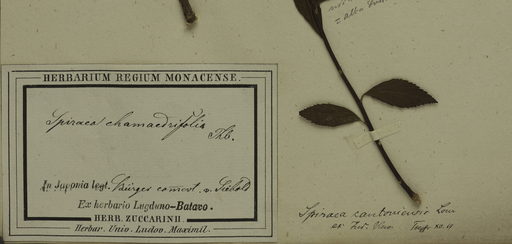 = alba
HERBARIUM REGIUM MONACENSE.
Spiraea chamaedrifolia
Thb.
In Japonia legt. Bürger comm. v. Siebold
Ex herbario Lugduno-Batavo.
HERB. ZUCCARINII.
Herbar. Univ. Ludov. Maximil.
Spiraea cantoniensis Lour
ex